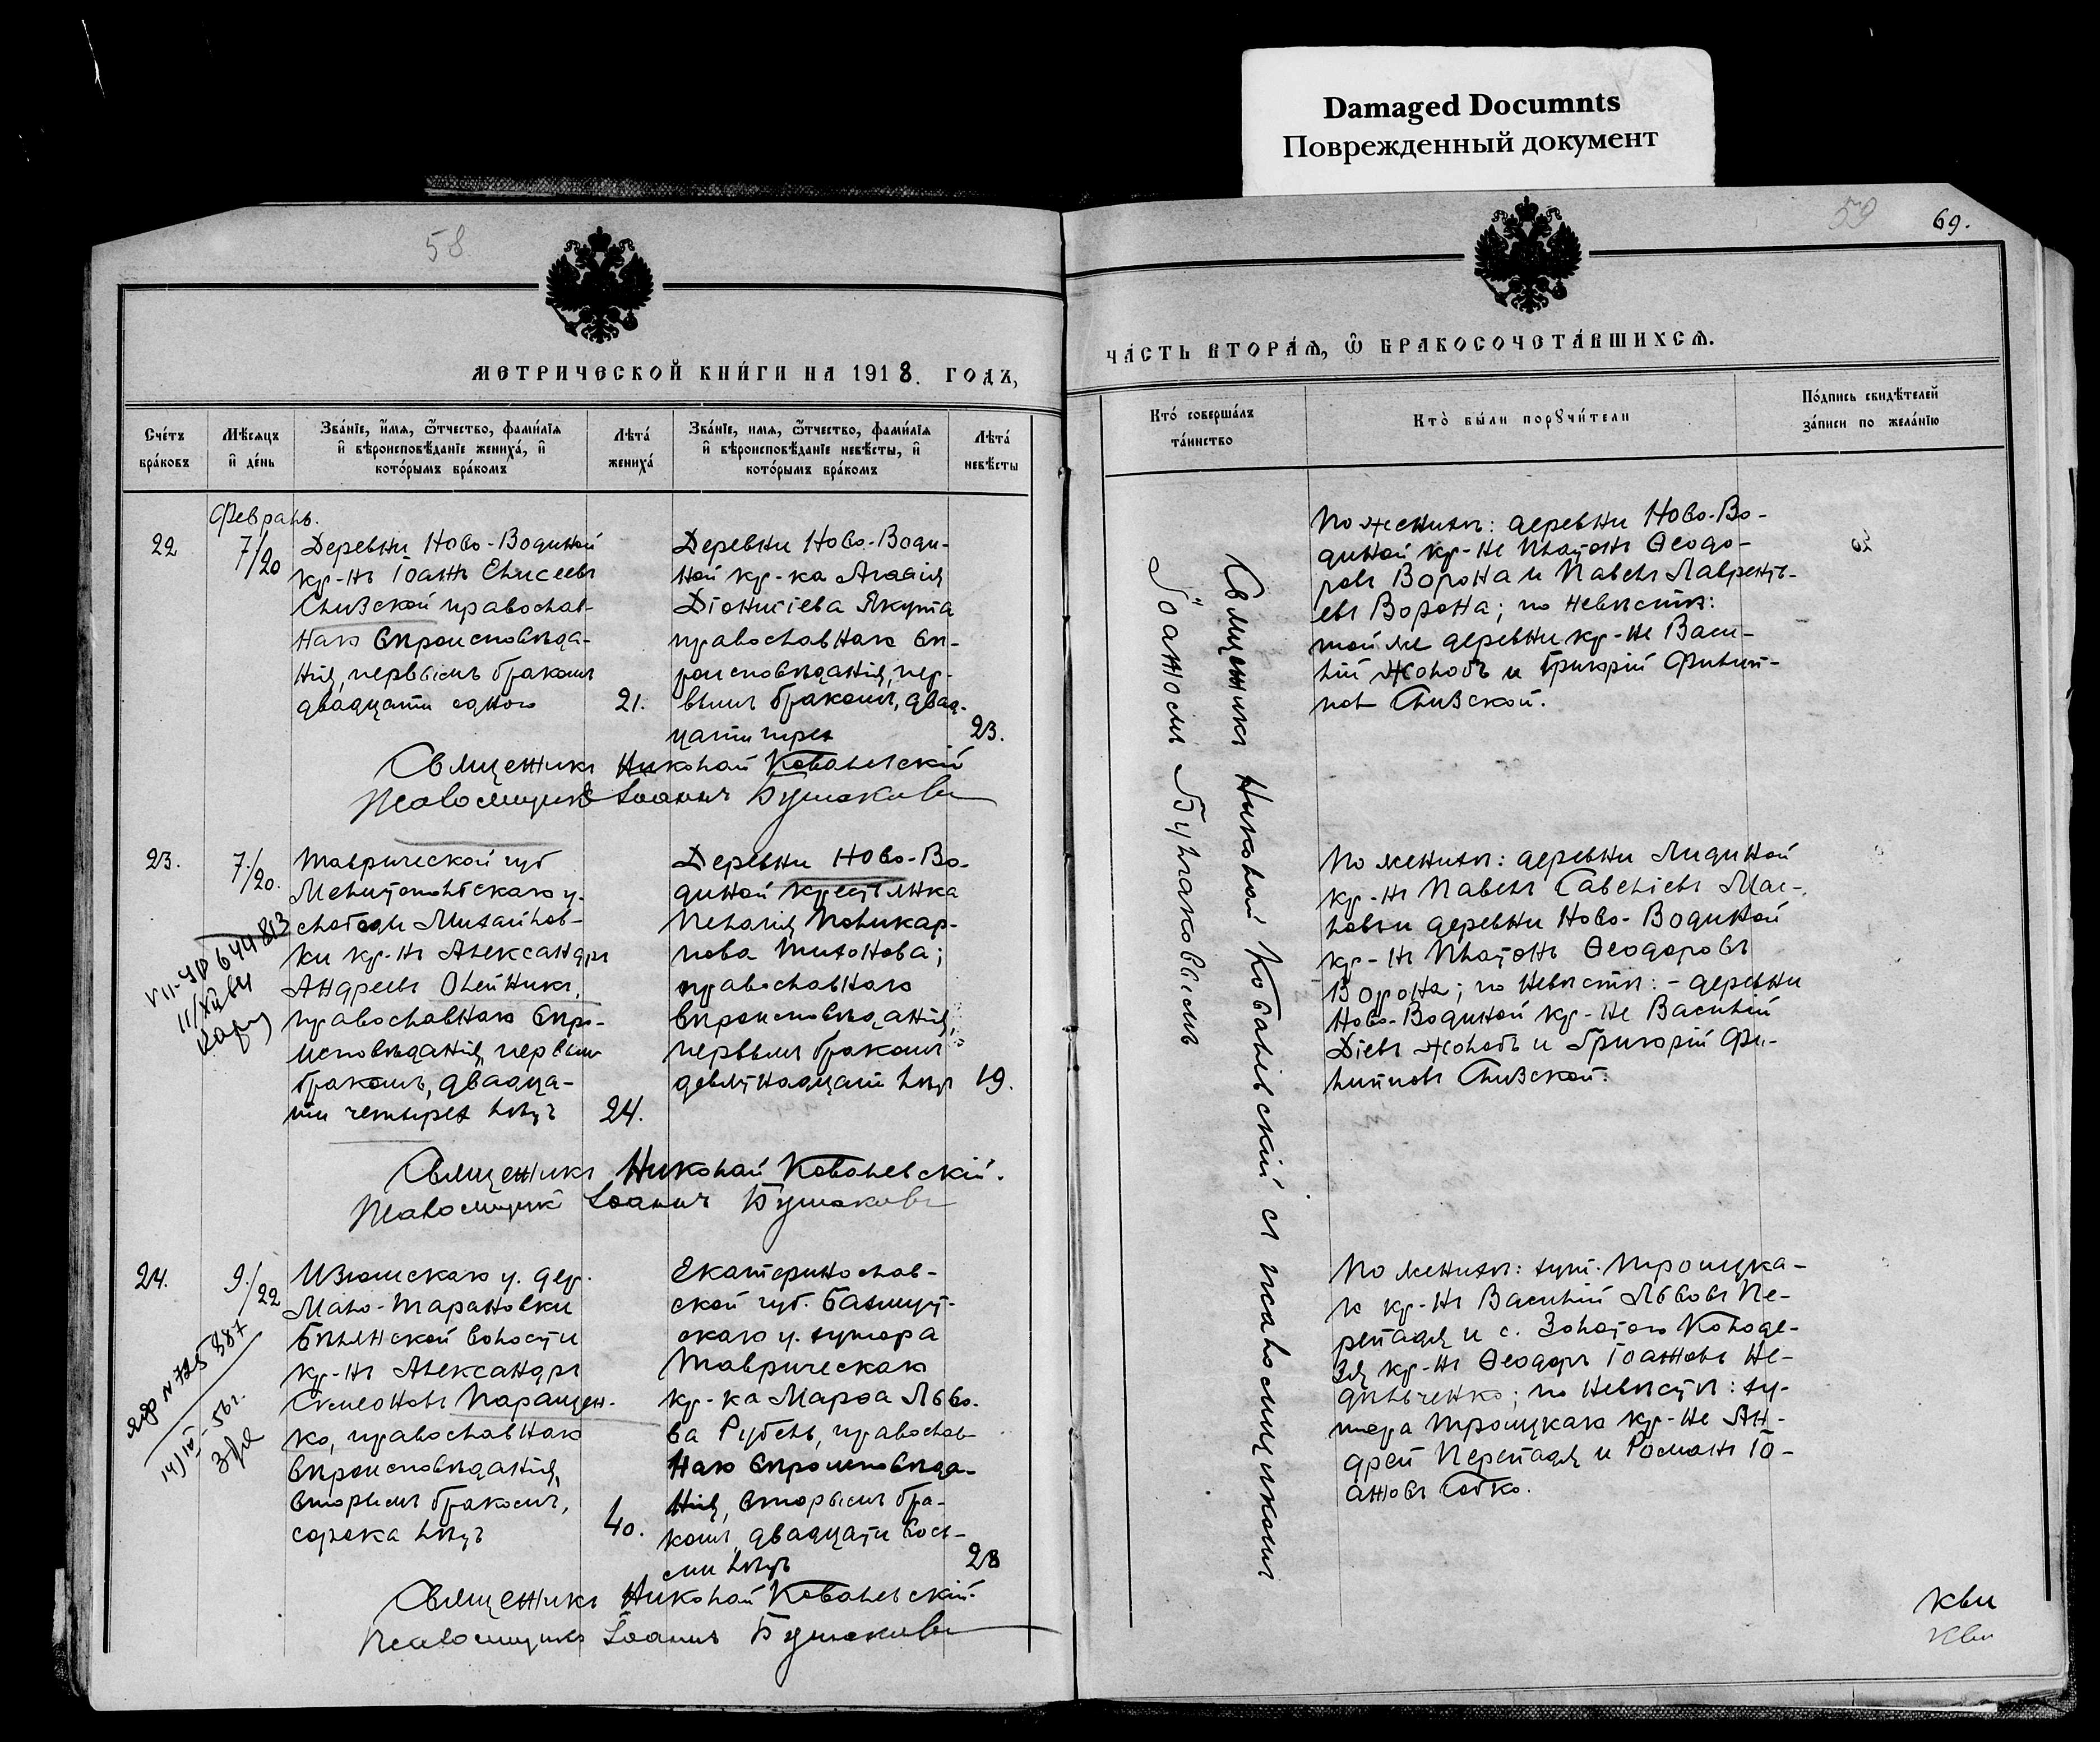 Damaged Documnts
Поврежденный документ
58
МЕТРИЧЕСКОЙ КНИ́ГИ НА 1918. ГОДЪ,
Сче́тъ бра́ковъ
Мѣ́сяцъ и҆ де́нь
Зва́нїе, и҆́мѧ, ѻ҆́тчество, фами́лїѧ и҆ вѣроисповѣ́данїе жениха́, и҆ кото́рымъ бра́комъ
Лѣта́ жениха́
Зва́нїе, и҆мѧ, ѻ҆́тчество, фами́лїѧ и҆ вѣроисповѣ́данїе невѣ́сты, и҆ кото́рымъ бра́комъ
Лѣта́ невѣ́сты
Февраль.
22
7/20
Деревни Ново-Водиной
кр-нъ Іоаннъ Елисеевъ
Сливской православ-
наго вѣроисповѣда-
нія, первымъ бракомъ
двадцати одного
21.
Деревни Ново-Води-
ной кр-ка Агафія
Діонисіева Якута
православнаго вѣ-
роисповѣданія, пер-
вымъ бракомъ, двад-
цати трех
23.
Священникъ Николай Ковалевскій
Псаломщикъ Іоаннъ Бурлаковъ
23.
7./20.
Таврической губ
Мелитопольскаго у.
слободы Михайлов-
ки кр-нъ Александръ
Андреевъ Олейникъ,
православнаго вѣро-
исповѣданія первым
бракомъ, двадца-
ти четырех лѣтъ
24.
Деревни Ново-Во-
диной крестьянка
Пелагія Поликар-
пова Тихонова;
православнаго
вѣроисповѣданія,
первымъ бракомъ
девятнадцати лѣт
19.
644813
Священникъ Николай Ковалевскій.
Псаломщикъ Іоаннъ Бурлаковъ
24.
9./22
Изюмскаго у. дер.
Мало-Тарановки
Бѣлянской волости
кр-нъ Александръ
Симеоновъ Паращен-
ко, православнаго
вѣроисповѣданія,
вторымъ бракомъ,
сорока лѣтъ
40.
Екатеринослав-
ской губ. Бахмут-
скаго у. хутора
Таврическаго
кр-ка Марѳа Льво-
ва Рубель, православ-
наго вѣроисповѣда-
нія, вторымъ бра-
комъ, двадцати вось-
ми лѣтъ
28
Священникъ Николай Ковалевскій.
Псаломщикъ Іоаннъ Бурлаковъ
59
69.
ЧА́СТЬ ВТОРА́Ѧ, Ѽ БРАКОСОЧЕТА́ВШИХСѦ.
Кто́ соверша́лъ та́инство
Кто̀ бы́ли порꙋчи́тели
По́дпись свидѣ́телей за́писи по жела́нїю
Священникъ Николай Ковалевскій съ псаломщикомъ
Іоанномъ Бурлаковымъ
По женихѣ: деревни Ново-Во-
диной кр-не Платонъ Ѳеодо-
ровъ Ворона и Павелъ Лавренть-
евъ Ворона; по невѣстѣ:
той же деревни кр-не Васи-
лій Жолобъ и Григорій Филип-
повъ Сливской.
По женихѣ: деревни Лидиной
кр-нъ Павелъ Савеліевъ Мас-
ловъ и деревни Ново-Водиной
кр-нъ Платонъ Ѳеодоровъ
Ворона; по невѣстѣ: - деревни
Ново-Водиной кр-не Василій
Діевъ Жолобъ и Григорій Фи-
липповъ Сливской.
По женихѣ: хут. Троицка-
го кр-нъ Василій Львовъ Пе-
репадя и с. Золотого Колоде-
зя кр-нъ Ѳеодоръ Іоанновъ Не-
дильченко; по невѣстѣ: ху-
тора Троицкаго кр-не Ан-
дрей Перепадя и Романъ Іо-
анновъ Собко.